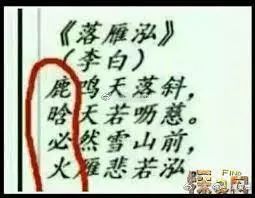 《落雁泓》
(李白)
鹿鸣天落斜，
晗天若呖慈。
必然雪山前，
火雁悲若泓
FIND